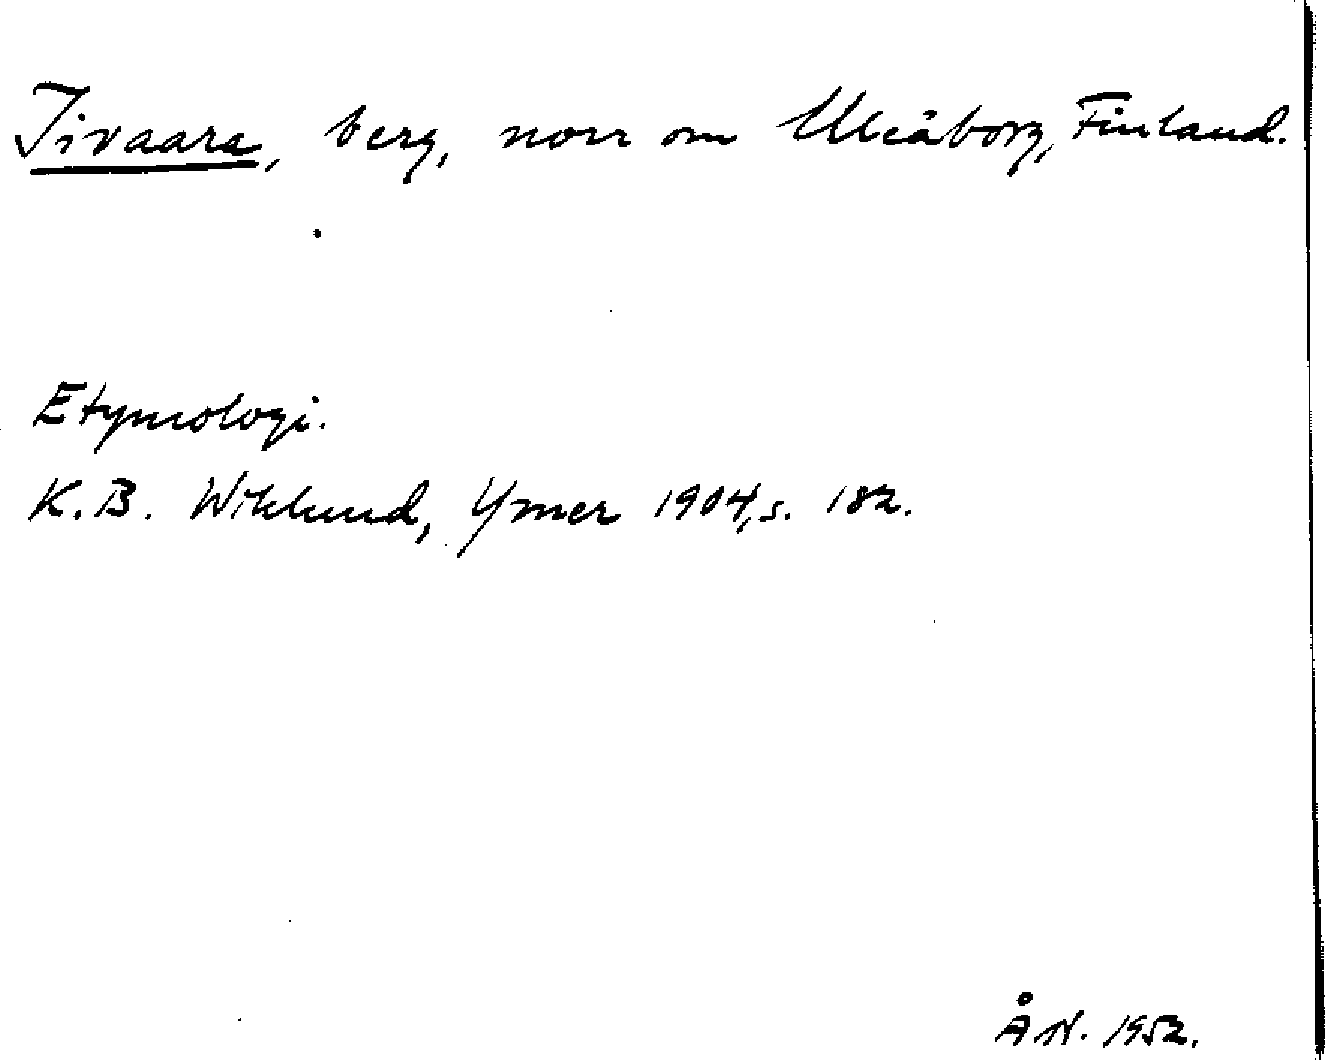 Iivaara, berg, norr om Uleåborg, Finland.
Etymologi.
K.B. Wiklund, Ymer 1904, s. 182.
Å N. 1952.